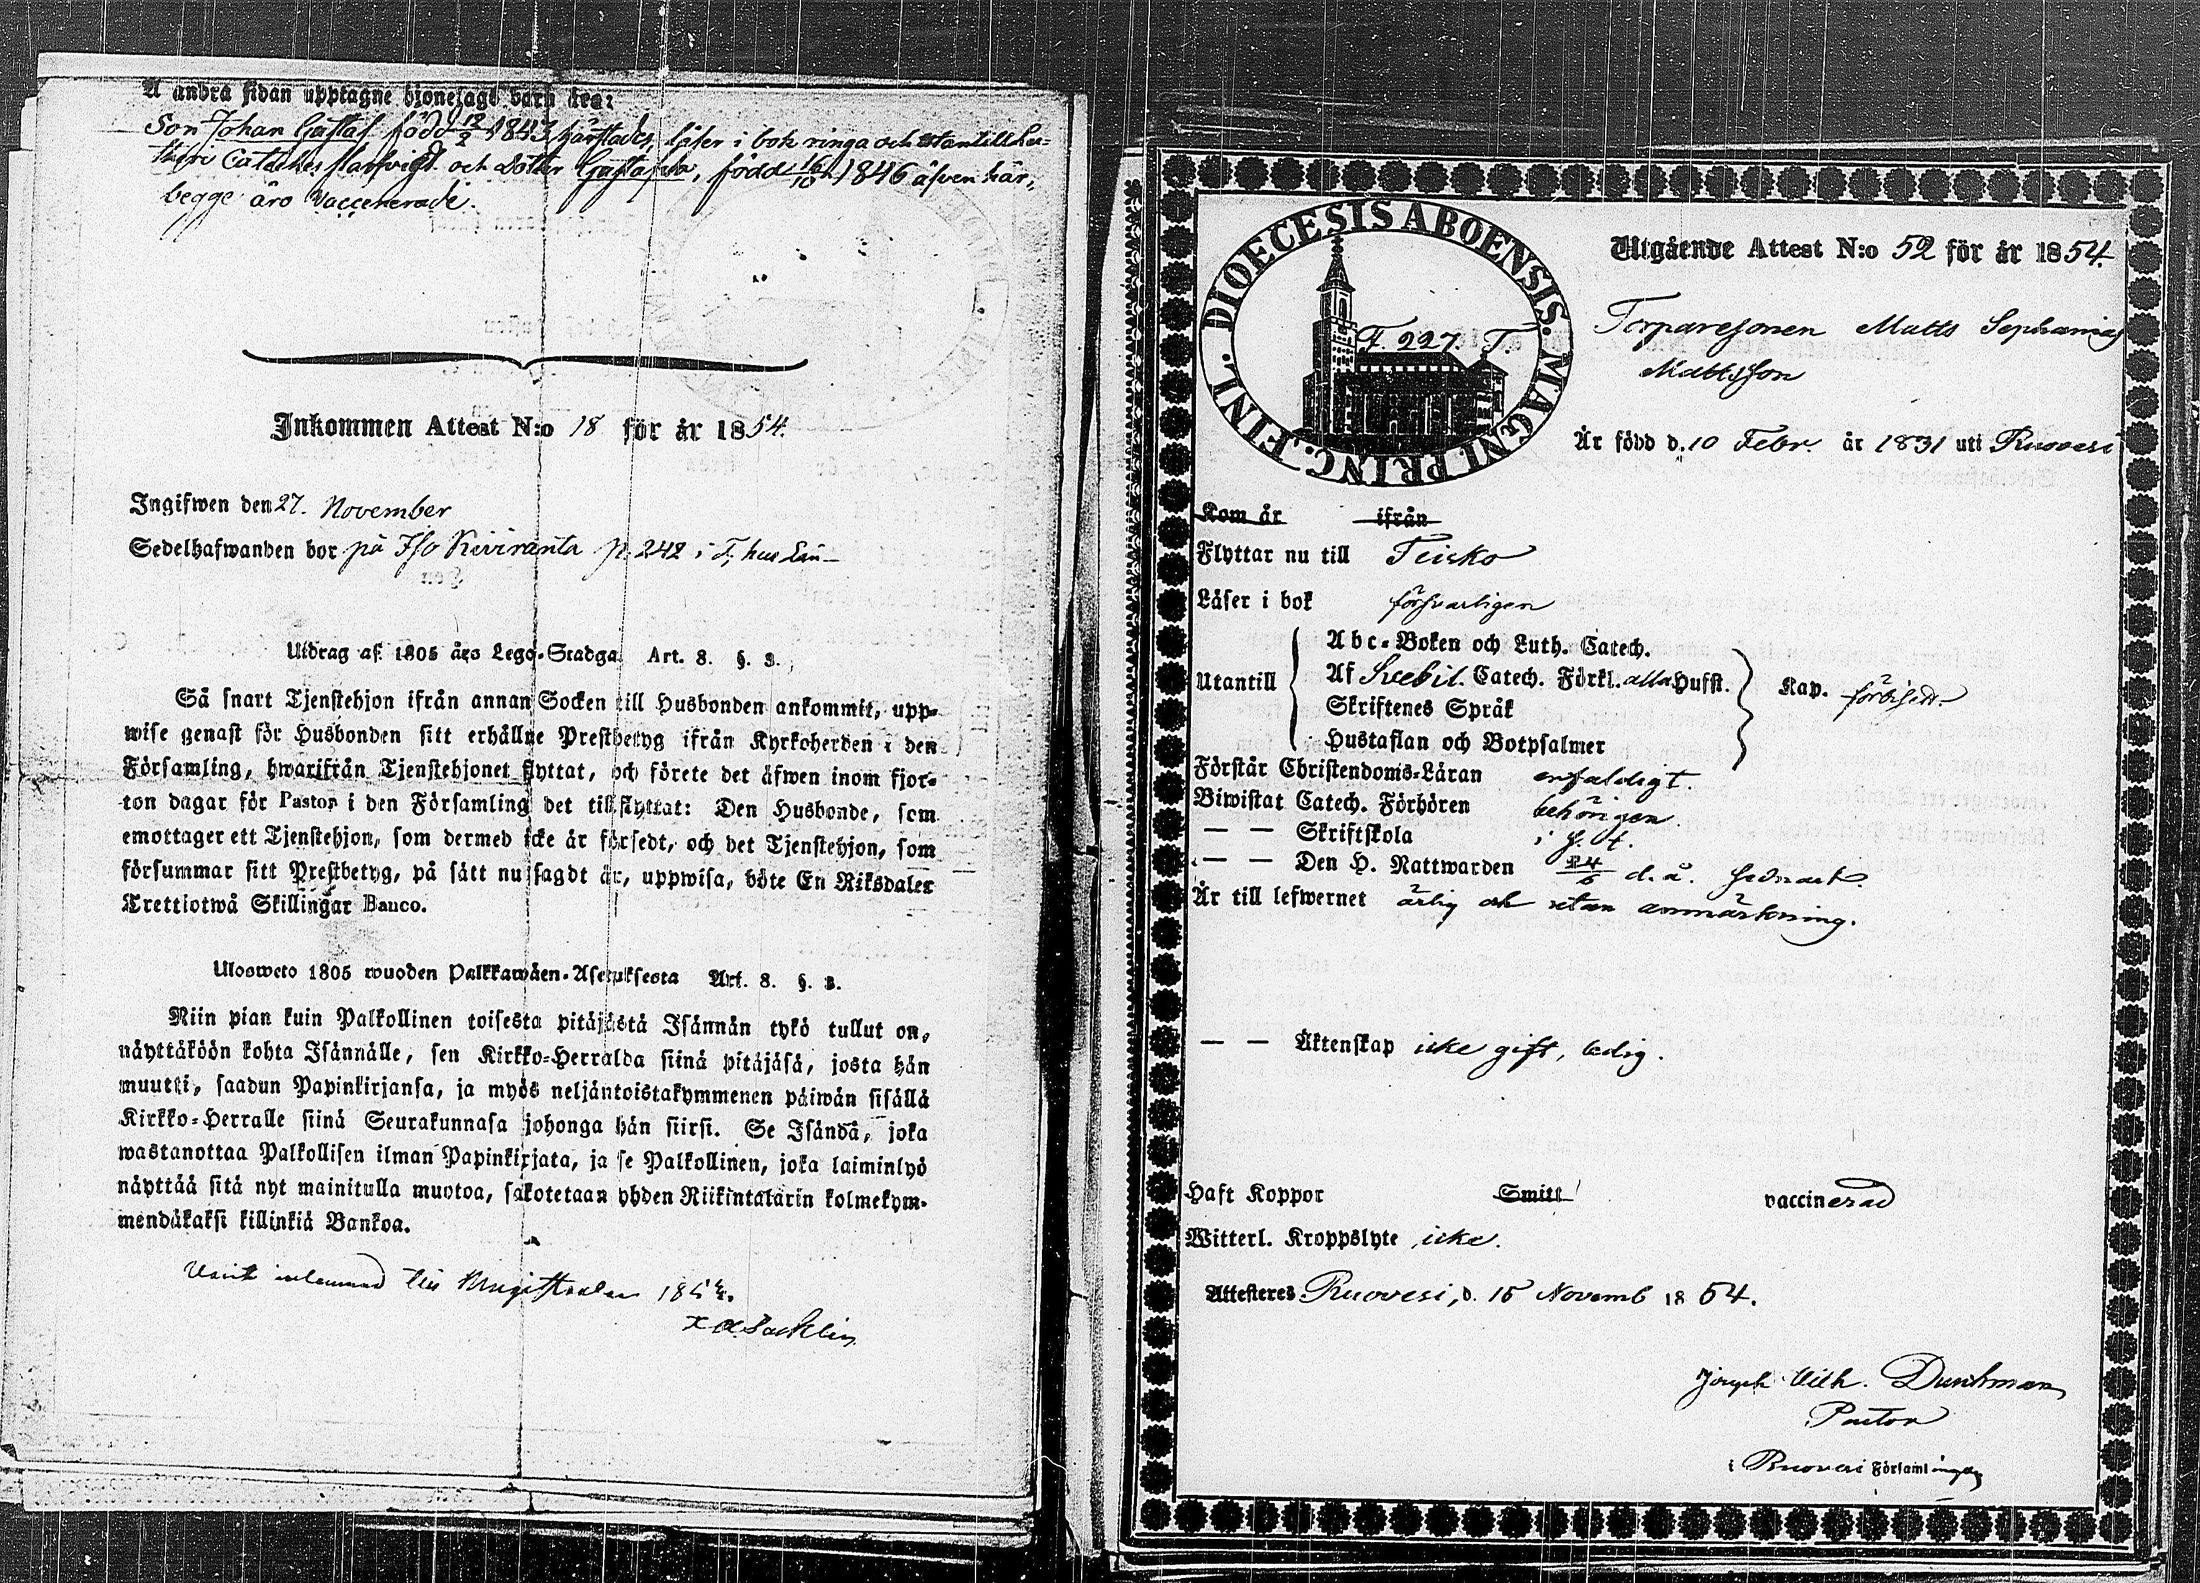 Å andra sidan upptagne hjonelags barn äro:
Son Johan Gustaf född 12/2 1843 härstädes, läser i bok ringa och utantill Lu-
theri Cateches och Dotter Gustafva, född 16/10 1846 äfven här,
begge äro Vaccinerade.
Inkommen Attest N:o 18 för år 1854.
Ingifwen den 27. November
Sedelhafwanden bor på Iso Kiviranta p. 242 i T,
Utdrag af 1805 års Lego-Stadga. Art. 8. §. 3.
Så snart Tjenstehjon ifrån annan Socken till Husbonden ankommit, upp-
wise genast för Husbonden sitt erhållne Prestbetyg ifrån Kyrkoherden i den
Församling, hwarifrån Tjenstehjonet flyttat, och förete det äfwen inom fjor-
ton dagar för Pastor i den Församling det tillflyttat: Den Husbonde, som
emottager ett Tjenstehjon, som dermed icke är försedt, och det Tjenstehjon, som
försummar sitt Prestbetyg, på sätt nu sagdt är, uppwisa, böte En Riksdaler
Trettiotwå Skillingar Banco.
Ulosweto 1805 wuoden Palkkawäen-Asetuksesta Art. 8. §. 3.
Niin pian kuin Palkollinen toisesta pitäjästä Isännän tykö tullut on,
näyttäköön kohta Isännälle, sen Kirkko-Herralda siinä pitäjäsä, josta hän
muutti, saadun Papinkirjansa, ja myös neljäntoistakymmenen päiwän sisällä
Kirkko-Herralle siinä Seurakunnasa johonga hän siirsi. Se Isändä, joka
wastanottaa Palkollisen ilman Papinkirjata, ja se Palkollinen, joka laiminlyö
näyttää sitä nyt mainitulla muotoa, sakotetaan yhden Riikintalarin kolmekym-
mendäkaksi killinkiä Bankoa.
Varit till 1854.
DIOECESIS ABOENSIS. MAGNI PRINC. FINL.
F. 227. T.
Utgående Attest N:o 52 för år 1854.
Torparesonen Matts Sephanias
Mattsson
Är född d. 10 Febr. år 1831 uti Ruovesi
Kom år ifrån
Flyttar nu till Teisko
Läser i bok försvarligen
Utantill
Abc-Boken och Luth. Catech.
Af Svebil. Catech. Förkl. alla Hufst.
Skriftenes Språk
Hustaflan och Botpsalmer
Kap.
Förstår Christendoms-Läran enfaldigt.
Biwistat Catech. Förhören behörigen.
— — Skriftskola
— — Den H. Nattwarden 24/6 d. å. sednast.
Är till lefwernet ärlig och utan anmärkning.
— — Äktenskap icke gift, ledig.
Haft Koppor Smitt vaccinerad
Witterl. Kroppslyte icke.
Attesteres Ruovesi, d. 15 Novemb 1854.
Joseph Wilh. Dunkman
Pastor
i Ruovesi Församlingen